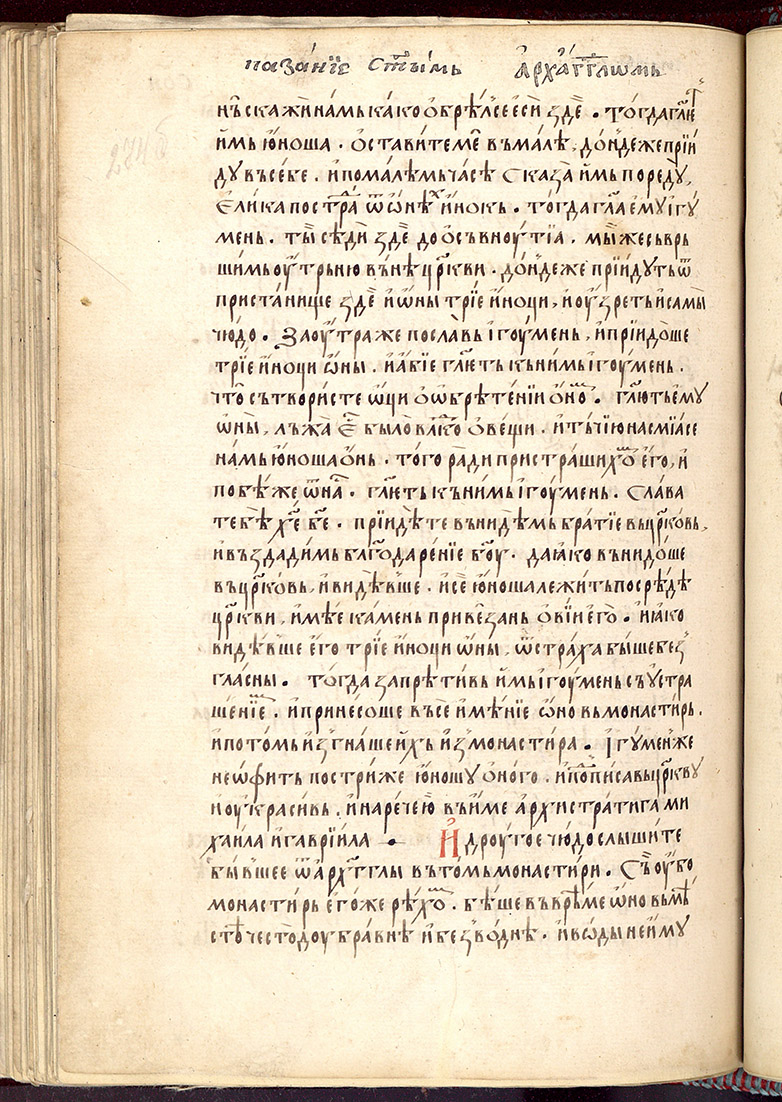 пазанїе ст҃ымь архагг҃лѡмь
нꙋ скажи намь како ѻбрѣл се еси здѣ . тогда гл҃ѥть
имь юноша . ѻставите ме въмалѣ , дондеже прїи
ду въ себе . и по малѣмь часѣ сказа имь по реду ,
елика постра ѿ ѡнѣх инокь . тогда гл҃а ему ігу
мень . ты сѣди здѣ до ѻсьвноутїа . мы же сьврь
шимь оутрьнюю вьнѣ цр҃кви . дондеже прїидуть ѿ
пристанище здѣ и ѡны трїе иноци , и оузреть и самы
чюдо . Заоутра же пославь ігоумень , и прїидоше
трїе иноци ѡны . и абїе гл҃ѥть кь нимь ігоумень .
что сьтвористе ѡци ѻ ѡбрѣтенїи ѻном . гл҃ють ему
ѡны , лъжа ѥ было вл҃ко ѻ вещи . и тьчїю насмїа се
намь юноша ѻнь . того ради пристрашихом его , и
побѣже ѿ на . гл҃ѥть кь нимь ігоумень . Слава
тебѣ хе҃ бе҃ . прїидѣте вьнидѣмь братїе вь цр҃ковь ,
и вьздадимь бл҃годаренїе бг҃оу . да ꙗко вьнидоше
вь цр҃ковь , и видѣвше . и се юноша лежить посрѣдѣ
цр҃кви , имѣе камень привезань ѻ вїи его . и ꙗко
видѣвше его трїе иноци ѡны , ѿ страха быше без
гласны . тогда запрѣтивь имь ігоумень сь устра
шенїем . и принесоше вьсе имѣнїе ѡно вь монастирь .
и потомь изгнаше ихь из монастира . Ігумен же
неѡфить постриже юношу ѻного . и пѻписа вь цр҃кву
и оукрасивь . и нарече ю вь име архистратига ми
хаила и гаврїила . И дроугое чюдо слышите
бывшее ѿ архаггл҃ы вь томь монастири . Сь оубо
монастирь егоже рѣхом . бѣше вь врѣме ѡно вь мѣ
стѣ често доубравнѣ и безводнѣ . и воды не иму